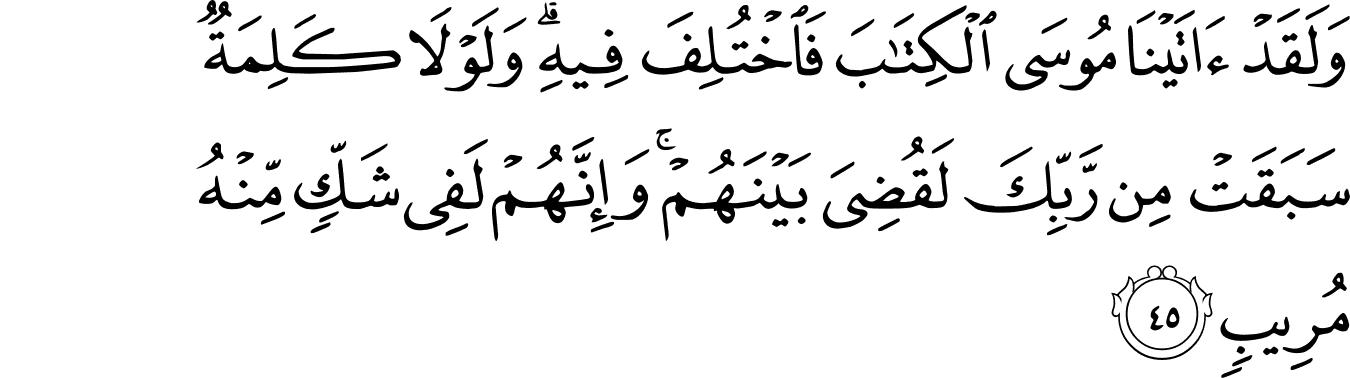 وَلَقَدۡ ءَاتَيۡنَا مُوسَى ٱلۡكِتَٰبَ فَٱخۡتُلِفَ فِيهِۗ وَلَوۡلَا كَلِمَةٞ
سَبَقَتۡ مِن رَّبِّكَ لَقُضِيَ بَيۡنَهُمۡۚ وَإِنَّهُمۡ لَفِي شَكّٖ مِّنۡهُ
مُرِيبٖ ٤٥